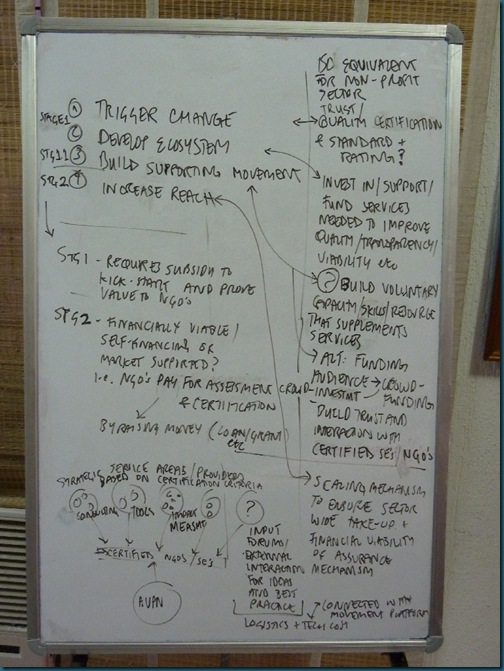 STAGE1 ① TRIGGER CHANGE
② DEVELOP ECOSYSTEM
③ BUILD SUPPORTING MOVEMENT
STG2 ④ INCREASE REACH
STG1 - REQUIRES SUBSIDY TO
KICK-START AND PROVE
VALUE TO NGO'S
STG2 - FINANCIALLY VIABLE/
SELF-FINANCING OR
MARKET SUPPORTED?
i.e. NGO'S PAY FOR ASSESSMENT
& CERTIFICATION
BY RAISING MONEY (LOAN/GRANT)
etc
STRATEGIC SERVICE AREAS/PROVIDERS
BASED ON CERTIFICATION CRITERIA
CONSULTING
TOOLS
IMPACT
MEASMT
?
CERTIFIED NGO'S / SE'S
AVPN
INPUT
FORUMS/
EXTERNAL
INTERACTION
FOR IDEAS
AND BEST
PRACTICE
LOGISTICS + TECH COST
EQUIVALENT
FOR NON-PROFIT
SECTOR
TRUST/
QUALITY CERTIFICATION
& STANDARD +
RATING?
INVEST IN/SUPPORT/
FUND SERVICES
NEEDED TO IMPROVE
QUALITY/TRANSPARENCY/
VIABILITY etc
? BUILD VOLUNTARY
CAPACITY/SKILLS/RESOURCE
THAT SUPPLEMENTS
SERVICES
ALT: FUNDING
AUDIENCE → CROWD-
CROWD-INVESTMT FUNDING
BUILD TRUST AND
INTERACTION WITH
CERTIFIED SE'S/NGO'S
SCALING MECHANISM
TO ENSURE SECTOR
WIDE TAKE-UP +
FINANCIAL VIABILITY
OF ASSURANCE
MECHANISM
CONNECTED WITH
MOVEMENT PLATFORM